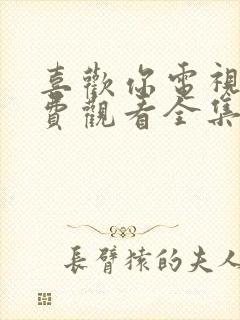 喜歡你電視
費觀看全集
長臂猿的夫人